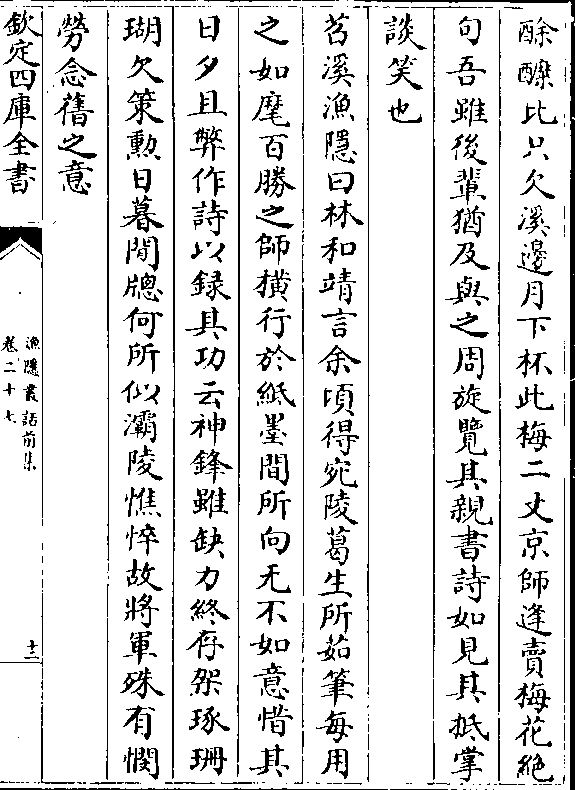 酴醾比只欠溪邊月下杯此梅二丈京師逢賣梅花絶
句吾雖後輩猶及與之周旋覽其親書詩如見其抵掌
談笑也
苕溪漁隱曰林和靖言余頃得宛陵葛生所茹筆每用
之如麾百勝之師横行於紙墨間所向无不如意惜其
日夕且弊作詩以録其功云神鋒雖缺力終存架琢珊
瑚欠策勲日暮閒牕何所似灞陵憔悴故將軍殊有憫
勞念舊之意
欽定四庫全書
漁隱叢話前集
卷二十七
十二